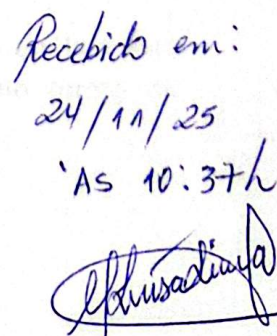 Recebido em:
24/11/25
'As 10:37h